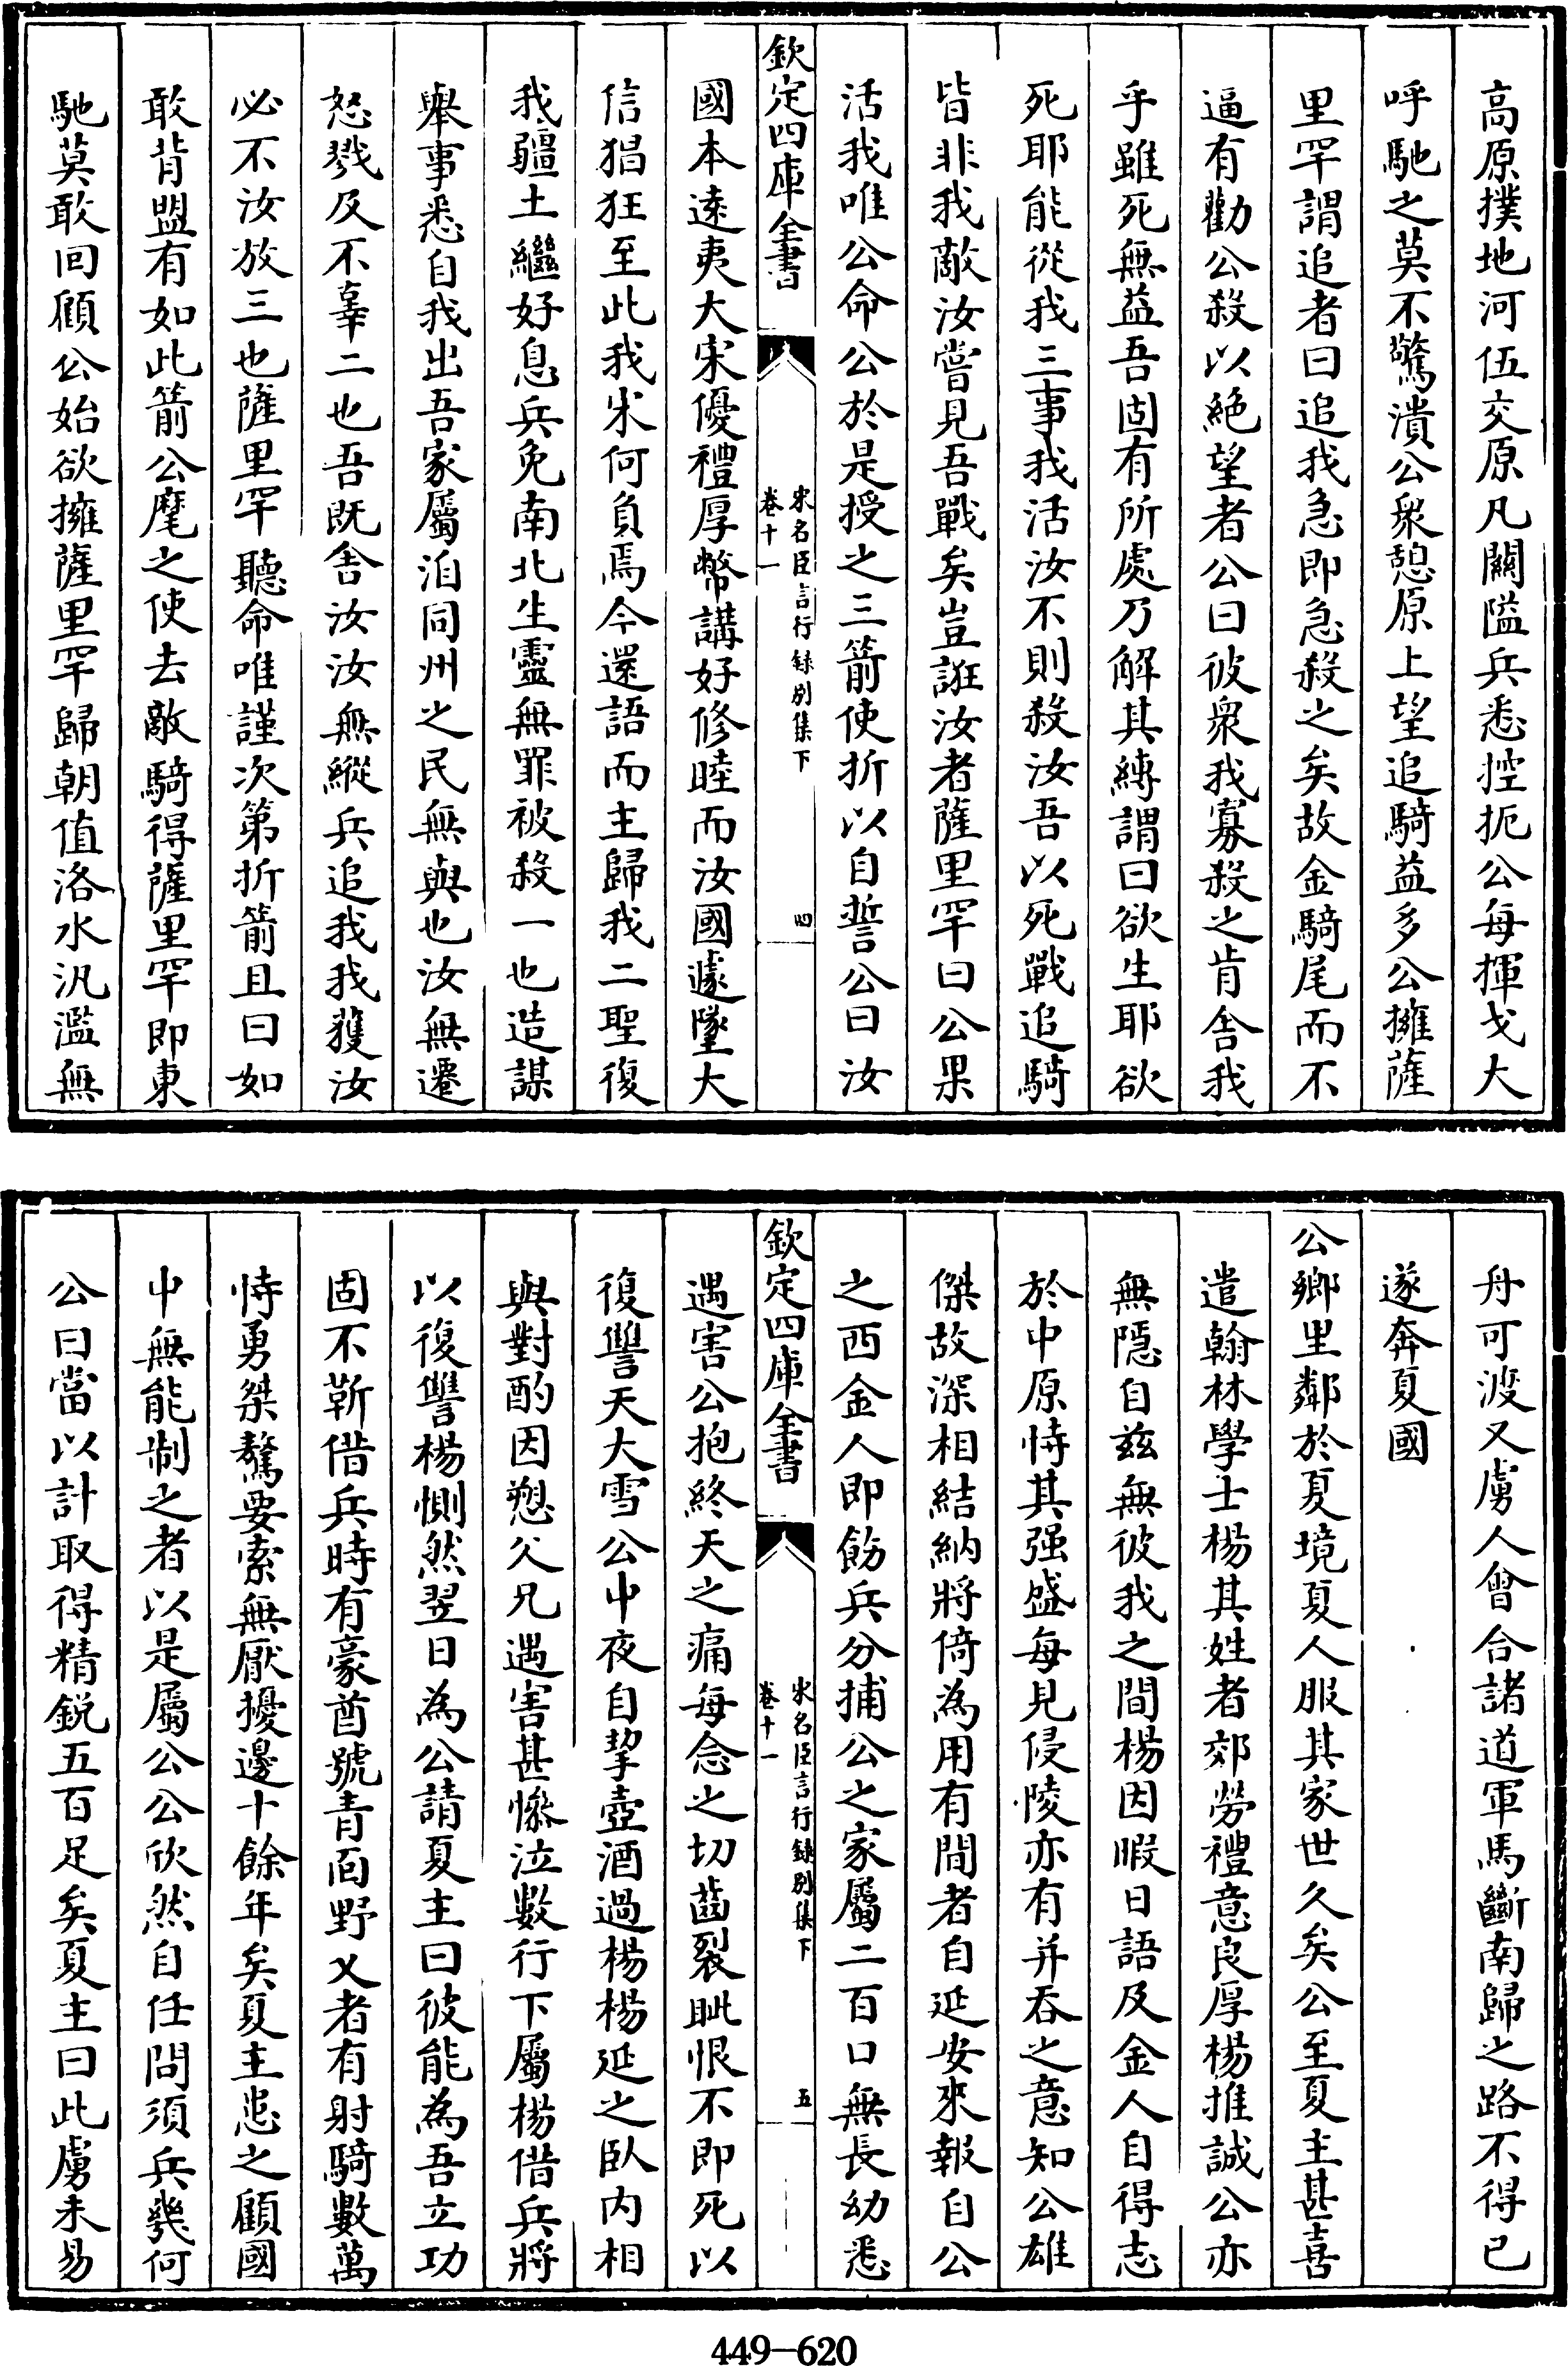 高原撲地河伍交原凡關隘兵悉控扼公每揮戈大
呼馳之莫不驚潰公衆憩原上望追騎益多公擁薩
里罕謂追者曰追我急即急殺之矣故金騎尾而不
逼有勸公殺以絶望者公曰彼衆我寡殺之肯舍我
乎雖死無益吾固有所處乃解其縛謂曰欲生耶欲
死耶能從我三事我活汝不則殺汝吾以死戰追騎
皆非我敵汝嘗見吾戰矣豈誑汝者薩里罕曰公果
活我唯公命公於是授之三箭使折以自誓公曰汝
欽定四庫全書
宋名臣言行録别集下
卷十一
四
國本逺夷大宋優禮厚幣講好修睦而汝國遽墜大
信猖狂至此我宋何負焉今還語而主歸我二聖復
我疆土繼好息兵免南北生靈無罪被殺一也造謀
舉事悉自我出吾家屬洎同州之民無與也汝無遷
怒戮及不辜二也吾既舍汝汝無縱兵追我我獲汝
必不汝放三也薩里罕聽命唯謹次第折箭且曰如
敢背盟有如此箭公麾之使去敵騎得薩里罕即東
馳莫敢回顧公始欲擁薩里罕歸朝值洛水汎濫無
舟可渡又虜人會合諸道軍馬斷南歸之路不得已
遂奔夏國
公鄉里鄰於夏境夏人服其家世久矣公至夏主甚喜
遣翰林學士楊其姓者郊勞禮意良厚楊推誠公亦
無隱自兹無彼我之間楊因暇日語及金人自得志
於中原恃其强盛每見侵陵亦有并吞之意知公雄
傑故深相結納將倚為用有間者自延安來報自公
之西金人即飭兵分捕公之家屬二百口無長幼悉
欽定四庫全書
宋名臣言行録别集下
卷十一
五
遇害公抱終天之痛每念之切齒裂眦恨不即死以
復讐天大雪公中夜自挈壺酒過楊楊延之臥内相
與對酌因愬父兄遇害甚慘泣數行下屬楊借兵將
以復讐楊惻然翌日為公請夏主曰彼能為吾立功
固不靳借兵時有豪酋號青面野乂者有射騎數萬
恃勇桀驁要索無厭擾邊十餘年矣夏主患之顧國
中無能制之者以是屬公公欣然自任問須兵幾何
公曰當以計取得精鋭五百足矣夏主曰此虜未易
449—620